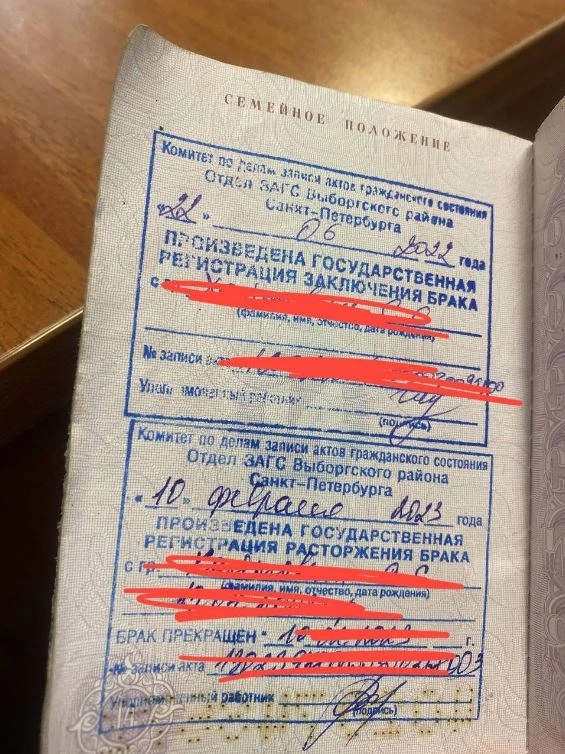 СЕМЕЙНОЕ ПОЛОЖЕНИЕ
Комитет по делам записи актов гражданского состояния
Отдел ЗАГС Выборгского района
Санкт-Петербурга
«22» 06 2022 года
ПРОИЗВЕДЕНА ГОСУДАРСТВЕННАЯ
РЕГИСТРАЦИЯ ЗАКЛЮЧЕНИЯ БРАКА
с
(фамилия, имя, отчество, дата рождения)
№ записи
Уполномоченный работник
(подпись)
Комитет по делам записи актов гражданского состояния
Отдел ЗАГС Выборгского района
Санкт-Петербурга
«10» февраля 2023 года
ПРОИЗВЕДЕНА ГОСУДАРСТВЕННАЯ
РЕГИСТРАЦИЯ РАСТОРЖЕНИЯ БРАКА
с гр.
(фамилия, имя, отчество, дата рождения)
БРАК ПРЕКРАЩЕН " г.
№ записи акта
Уполномоченный работник
(подпись)